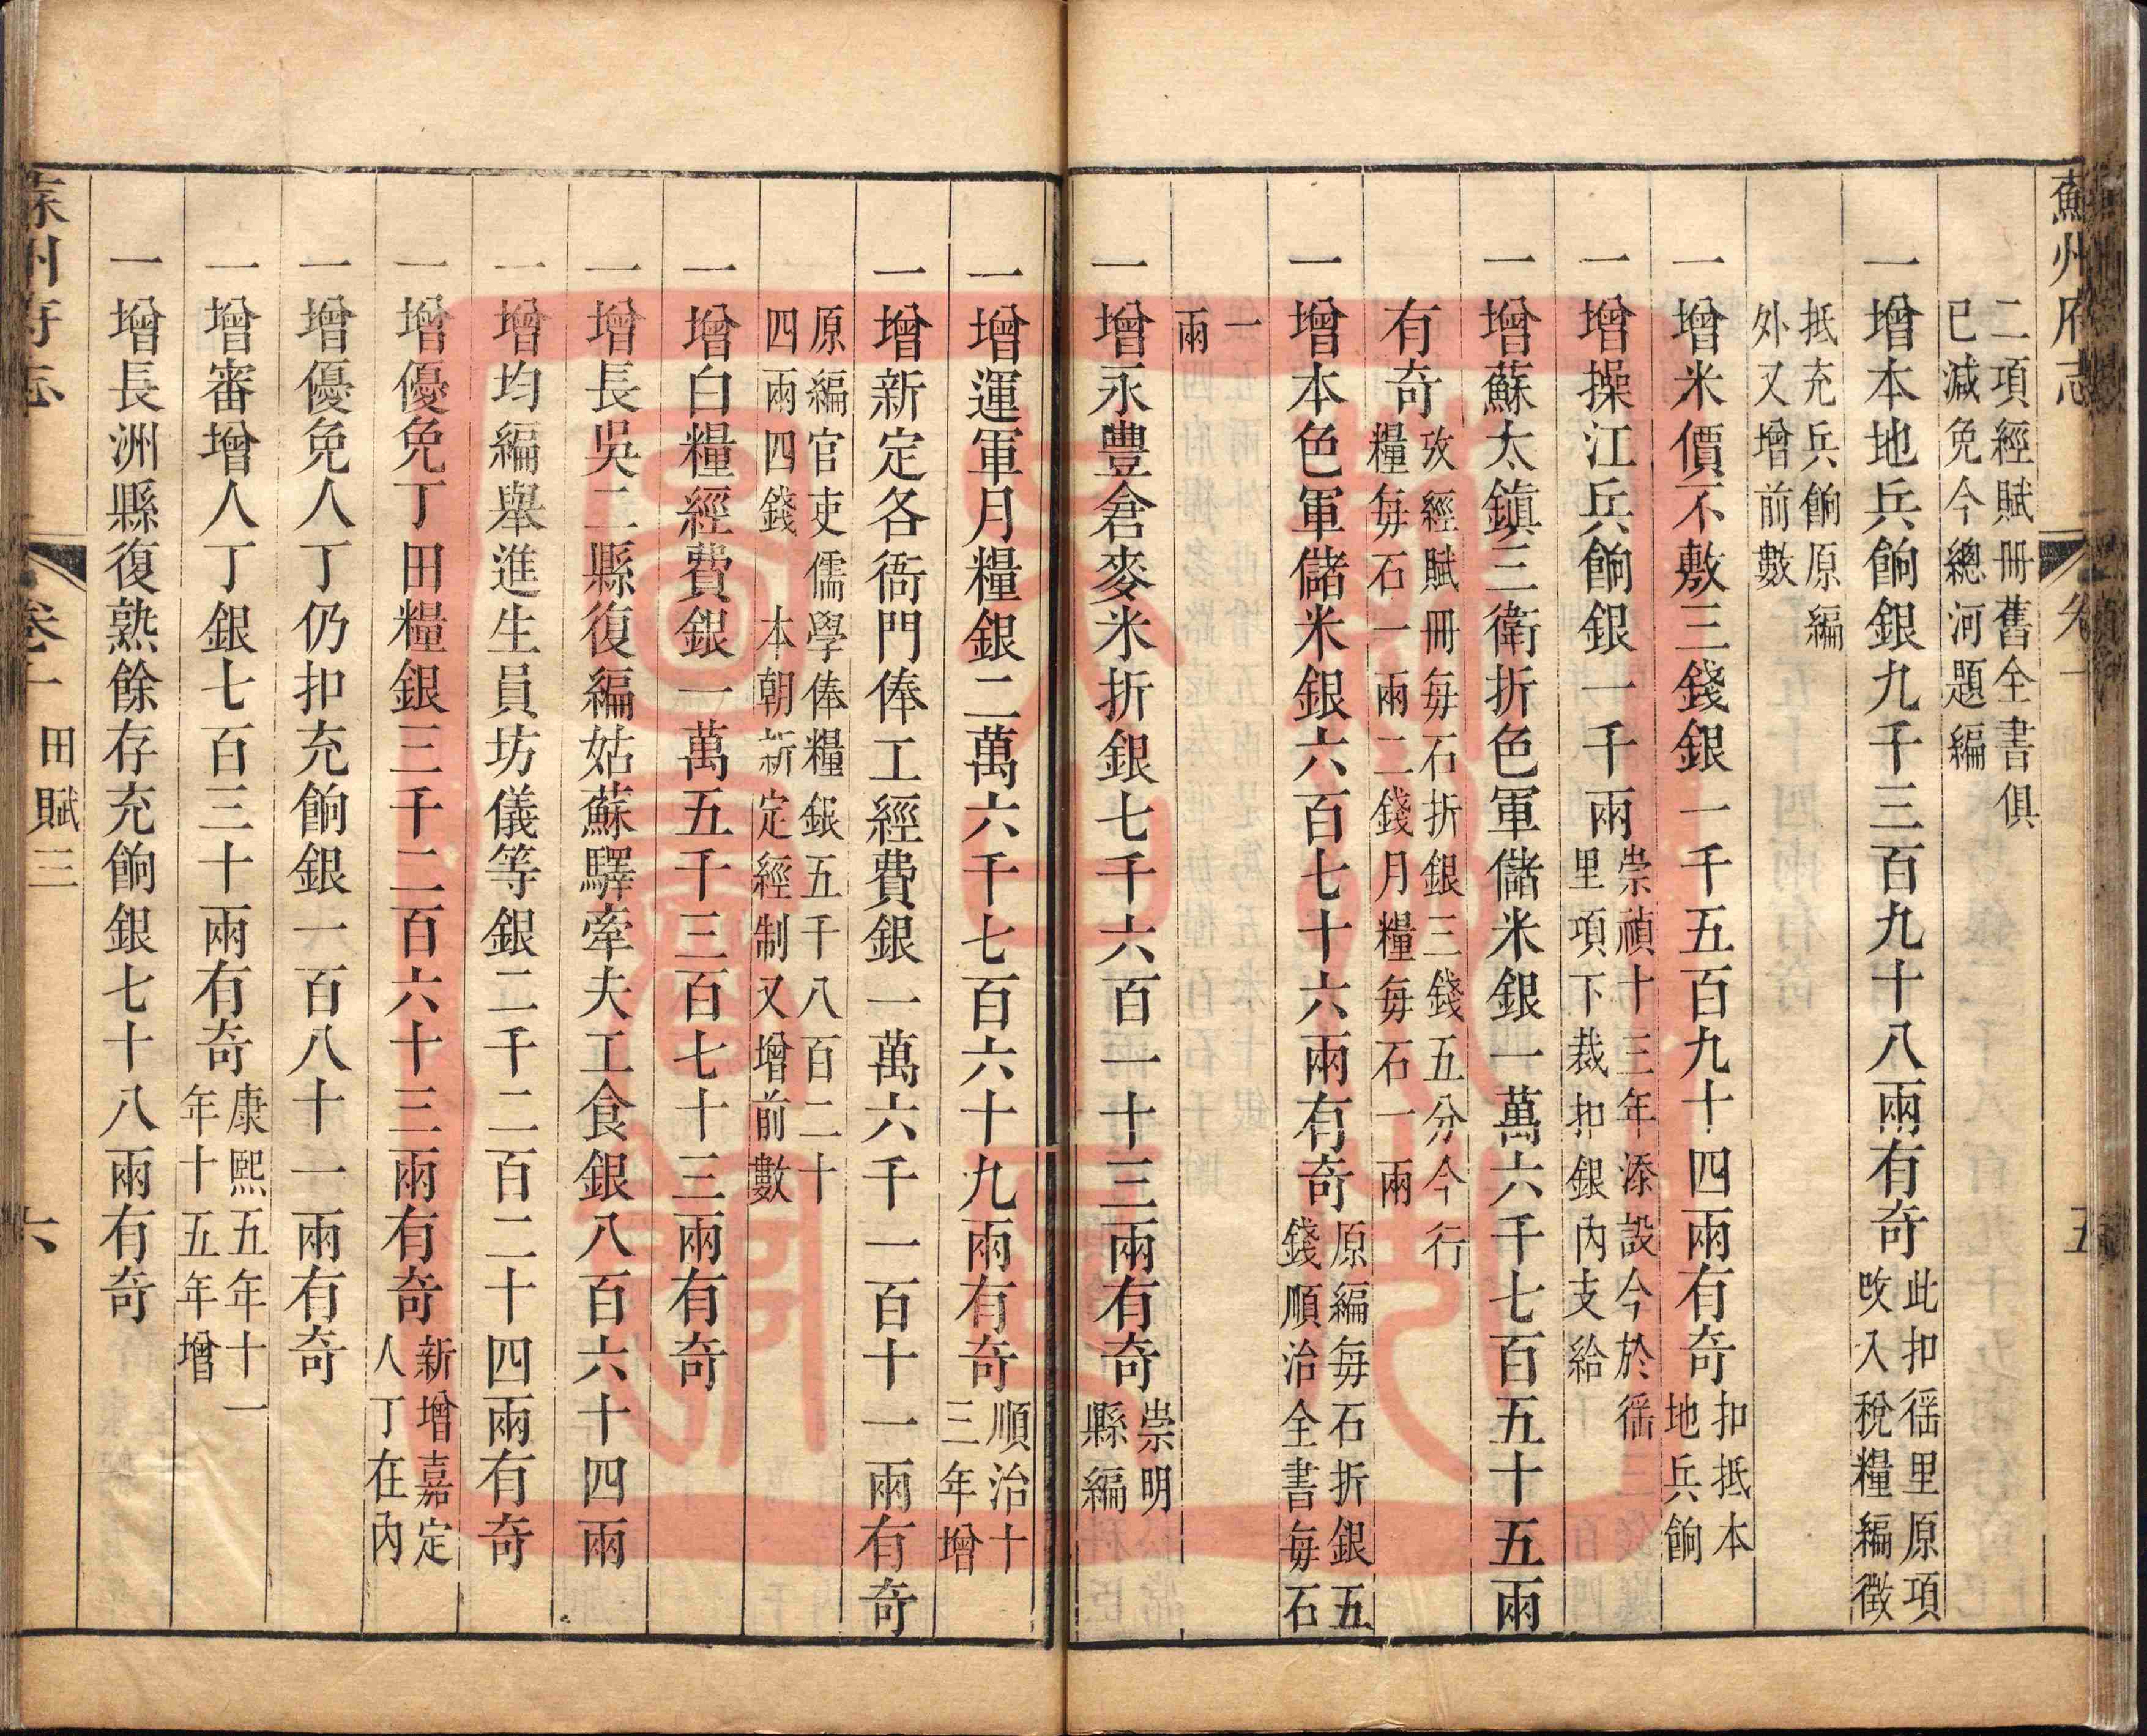 蘇州府志
卷十
五
二項經賦冊舊全書俱
已減免今總河題編
一增本地兵餉銀九千三百九十八兩有奇此扣徭里原項
攺入稅糧編徵
一增米價不敷三錢銀一千五百九十四兩有奇扣抵本
地兵餉
抵充兵餉原編
外又增前數
一增操江兵餉銀一千兩崇禎十三年添設今於徭
里項下裁扣銀內支給
一增蘇太鎮三衛折色軍儲米銀一萬六千七百五十五兩
有奇攷經賦冊每石折銀三錢五分今行
糧每石一兩二錢月糧每石一兩
一增本色軍儲米銀六百七十六兩有奇原編每石折銀五
錢順治全書每石
一
兩
一增永豐倉麥米折銀七千六百一十三兩有奇崇明
縣編
一增運軍月糧銀二萬六千七百六十九兩有奇順治十
三年增
一增新定各衙門俸工經費銀一萬六千一百十一兩有奇
原編官吏儒學俸糧銀五千八百二十
四兩四錢 本朝新定經制又增前數
一增白糧經費銀一萬五千三百七十三兩有奇
一增長吳二縣復編姑蘇驛牽夫工食銀八百六十四兩
一增均編舉進生員坊儀等銀二千二百二十四兩有奇
一增優免丁田糧銀三千二百六十三兩有奇新增嘉定
人丁在內
一增優免人丁仍扣充餉銀一百八十一兩有奇
一增審增人丁銀七百三十兩有奇康熙五年十一
年十五年增
一增長洲縣復熟餘存充餉銀七十八兩有奇
蘇州府志
卷十 田賦三
六